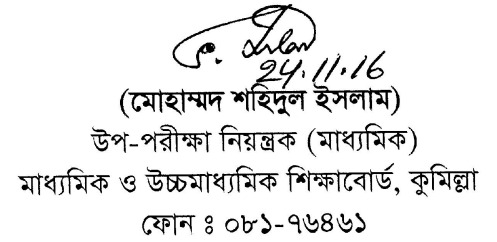 24.11.16
(মোহাম্মদ শহিদুল ইসলাম)
উপ-পরীক্ষা নিয়ন্ত্রক (মাধ্যমিক)
মাধ্যমিক ও উচ্চমাধ্যমিক শিক্ষাবোর্ড, কুমিল্লা
ফোন ঃ ০৮১-৭৬৪৬১